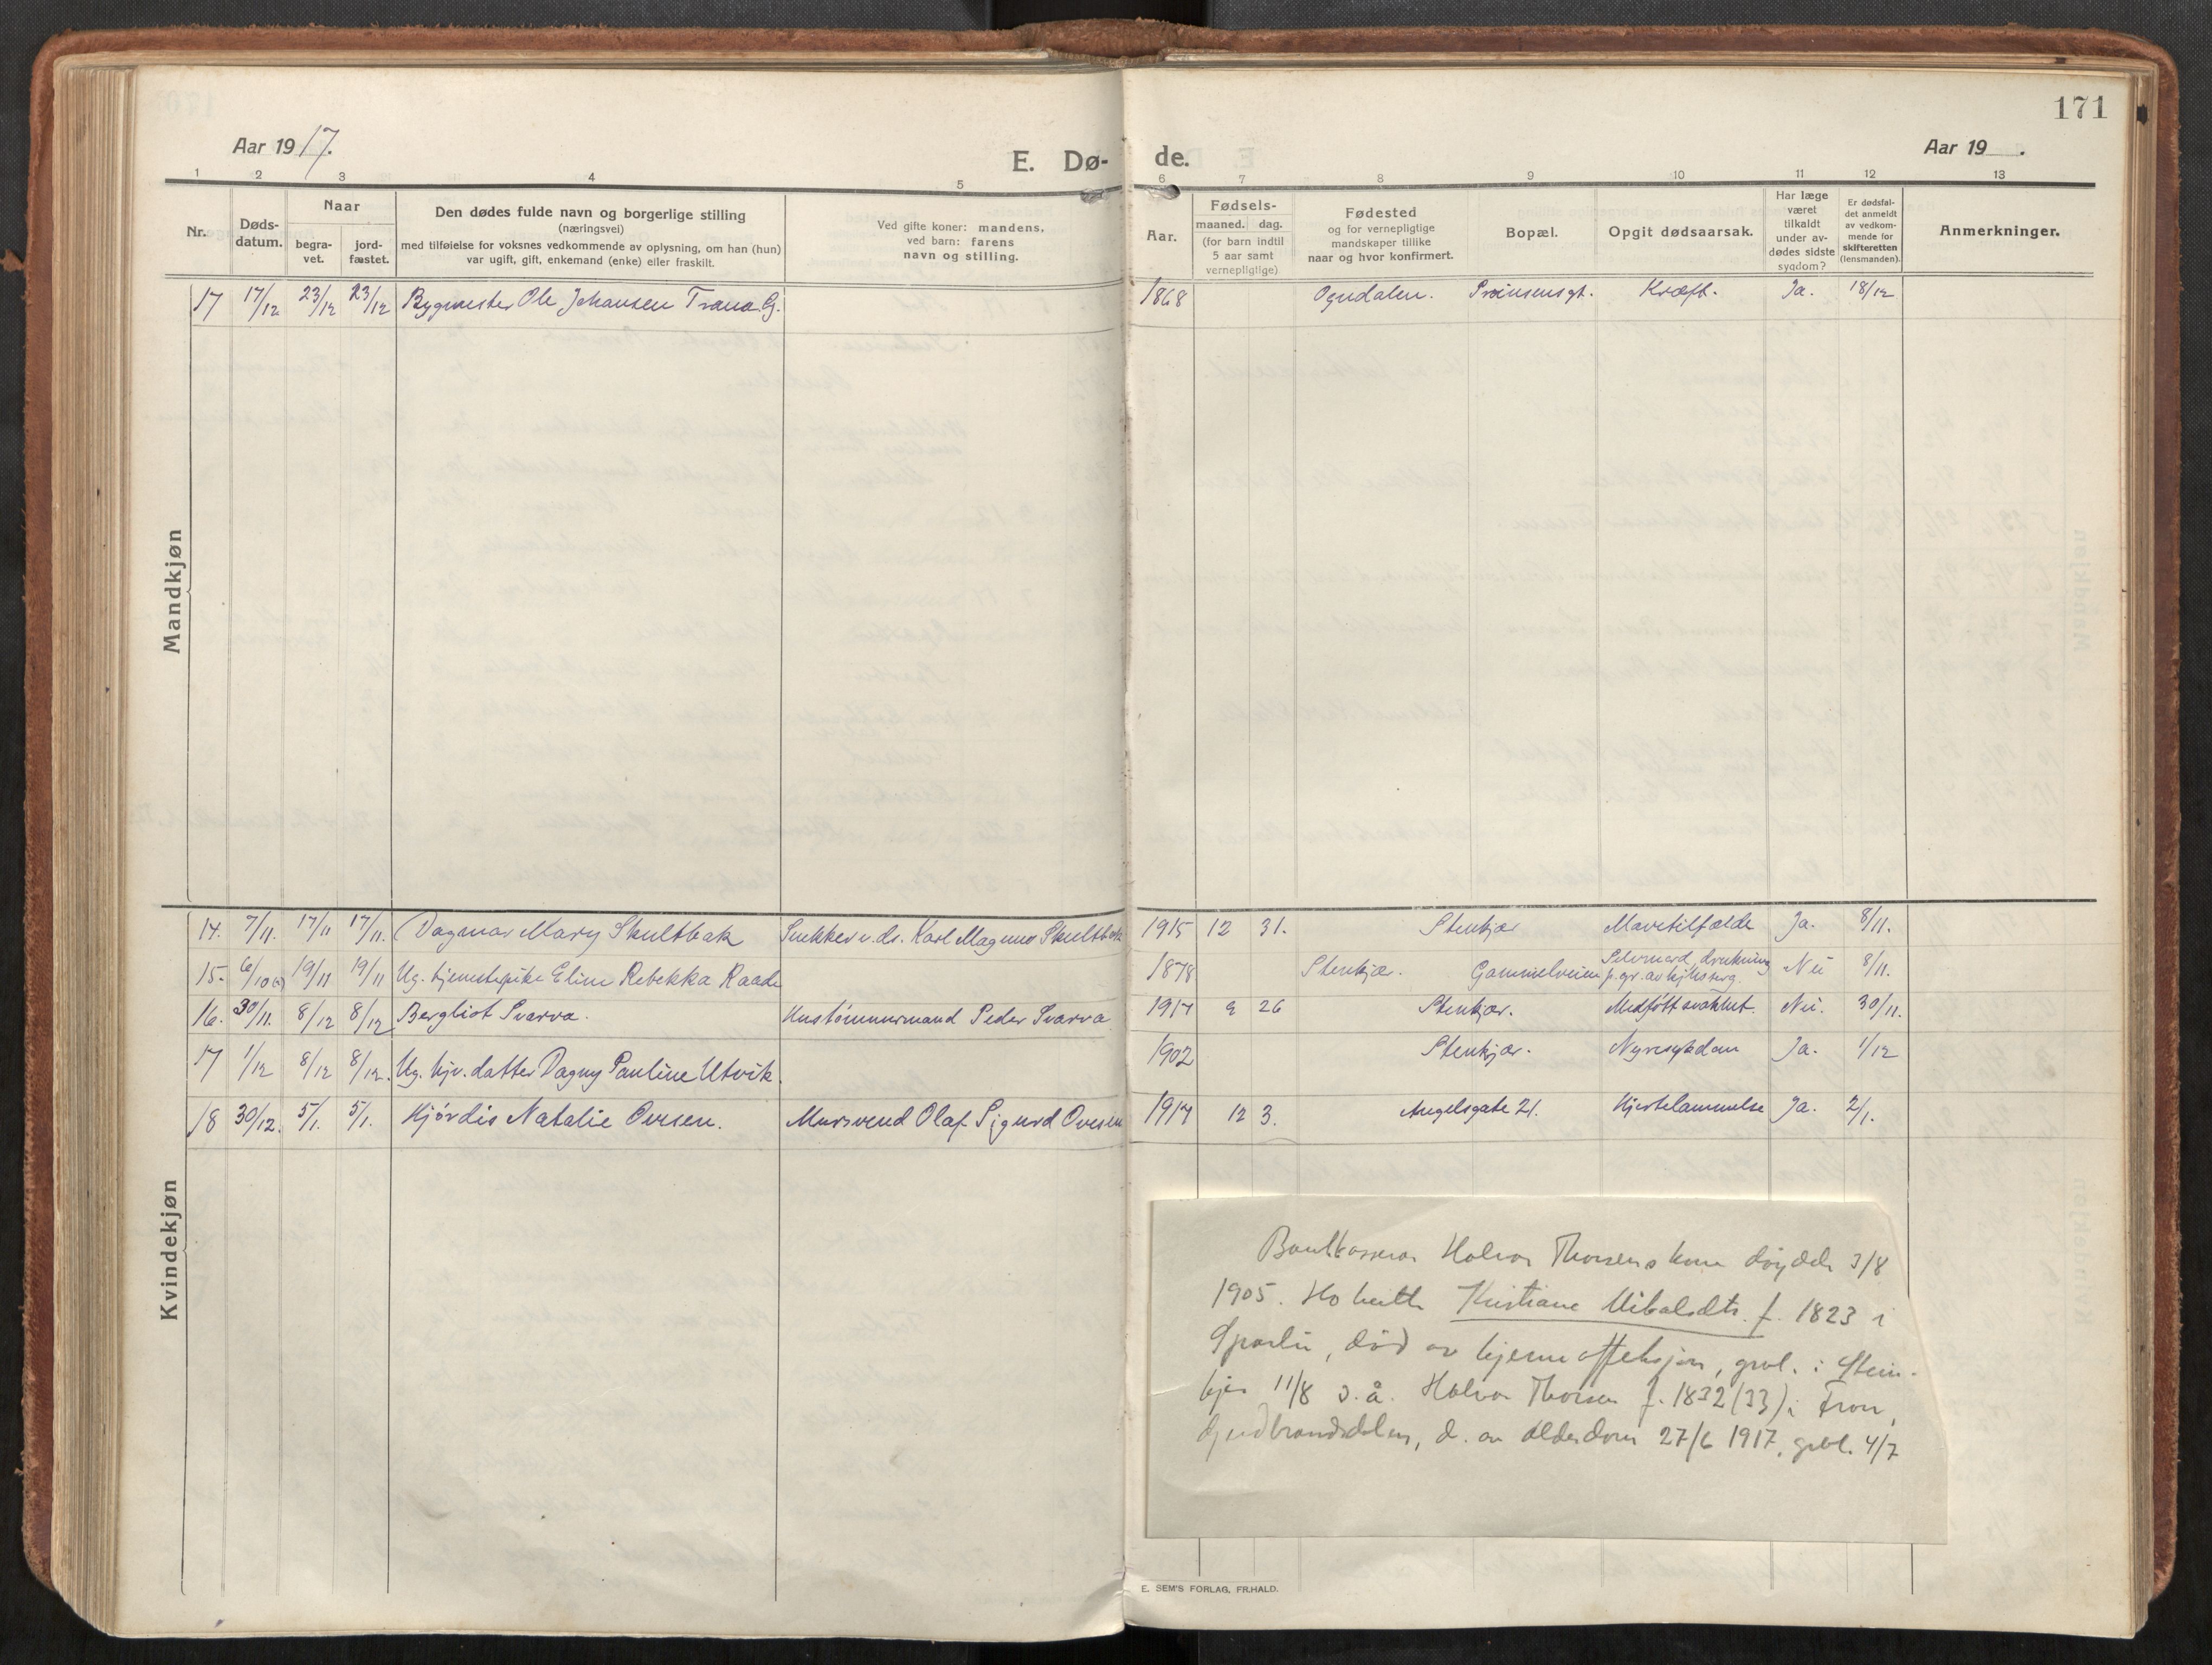 171
Aar 1917.
E. Dø-
de.
Aar 19 .
1 2 3 4 5 6 7 8 9 10 11 12 13
Nr.
Døds-
datum.
Naar
begra-
vet.
jord-
fæstet.
Den dødes fulde navn og borgerlige stilling
(næringsvei)
med tilføielse for voksnes vedkommende av oplysning, om han (hun)
var ugift, gift, enkemand (enke) eller fraskilt.
Ved gifte koner: mandens,
ved barn: farens
navn og stilling.
Aar.
Fødsels-
maaned. dag.
(for barn indtil
5 aar samt
vernepligtige)
Fødested
og for vernepligtige
mandskaper tillike
naar og hvor konfirmert.
Bopæl.
Opgit dødsaarsak.
Har læge
været
tilkaldt
under av-
dødes sidste
sygdom?
Er dødsfal-
det anmeldt
av vedkom-
mende for
skifteretten
(lensmanden).
Anmerkninger.
Mandkjøn
17 17/12 23/12 23/12 Bygmester Ole Johansen Trana G. 1868 Ogndalen. Prinsensgt. Kræft. Ja. 18/12
Kvindekjøn
14. 7/11. 17/11 17/11. Dagmar Mary Skultbak Snekkersv. dr. Karl Magnus Skultbak 1915 12 31. Stenkjær Mavetilfælde Ja. 8/11.
15. 6/10 19/11 19/11 Ug. tjenestepike Eline Rebekka Raade 1878 Stenkjær. Gammelveien Selvmord, drukning p. gr. av Nei 8/11.
16. 30/11. 8/12 8/12 Bergliot Svarva. Hustømmermand Peder Svarva 1917 9 26 Stenkjær. Medfødt svakhet. Nei. 30/11.
17 1/12 8/12 8/12. Ug. hjv. datter Dagny Pauline Utvik. 1902 Stenkjær. Nyresykdom Ja. 1/12
18 30/12. 5/1. 5/1. Hjørdis Natalie Ovesen. Mursvend Olaf Sigurd Ovesen 1917 12 3. Angelsgate 21. Hjertelammelse Ja. 2/1.
Bankkasserar Halvor Thorsens kone døydde 3/8
1905. Ho heitte Kristiane Mikalsdtr. f. 1823 i
Sparbu, død av hjerneaffeksjon, gravl. i Stein-
kjer 11/8 s.å. Halvor Thorsen f. 1832 (33) i Fron,
Gudbrandsdalen, d. av alderdom 27/6 1917, gravl. 4/7
E. SEM'S FORLAG, FR.HALD.